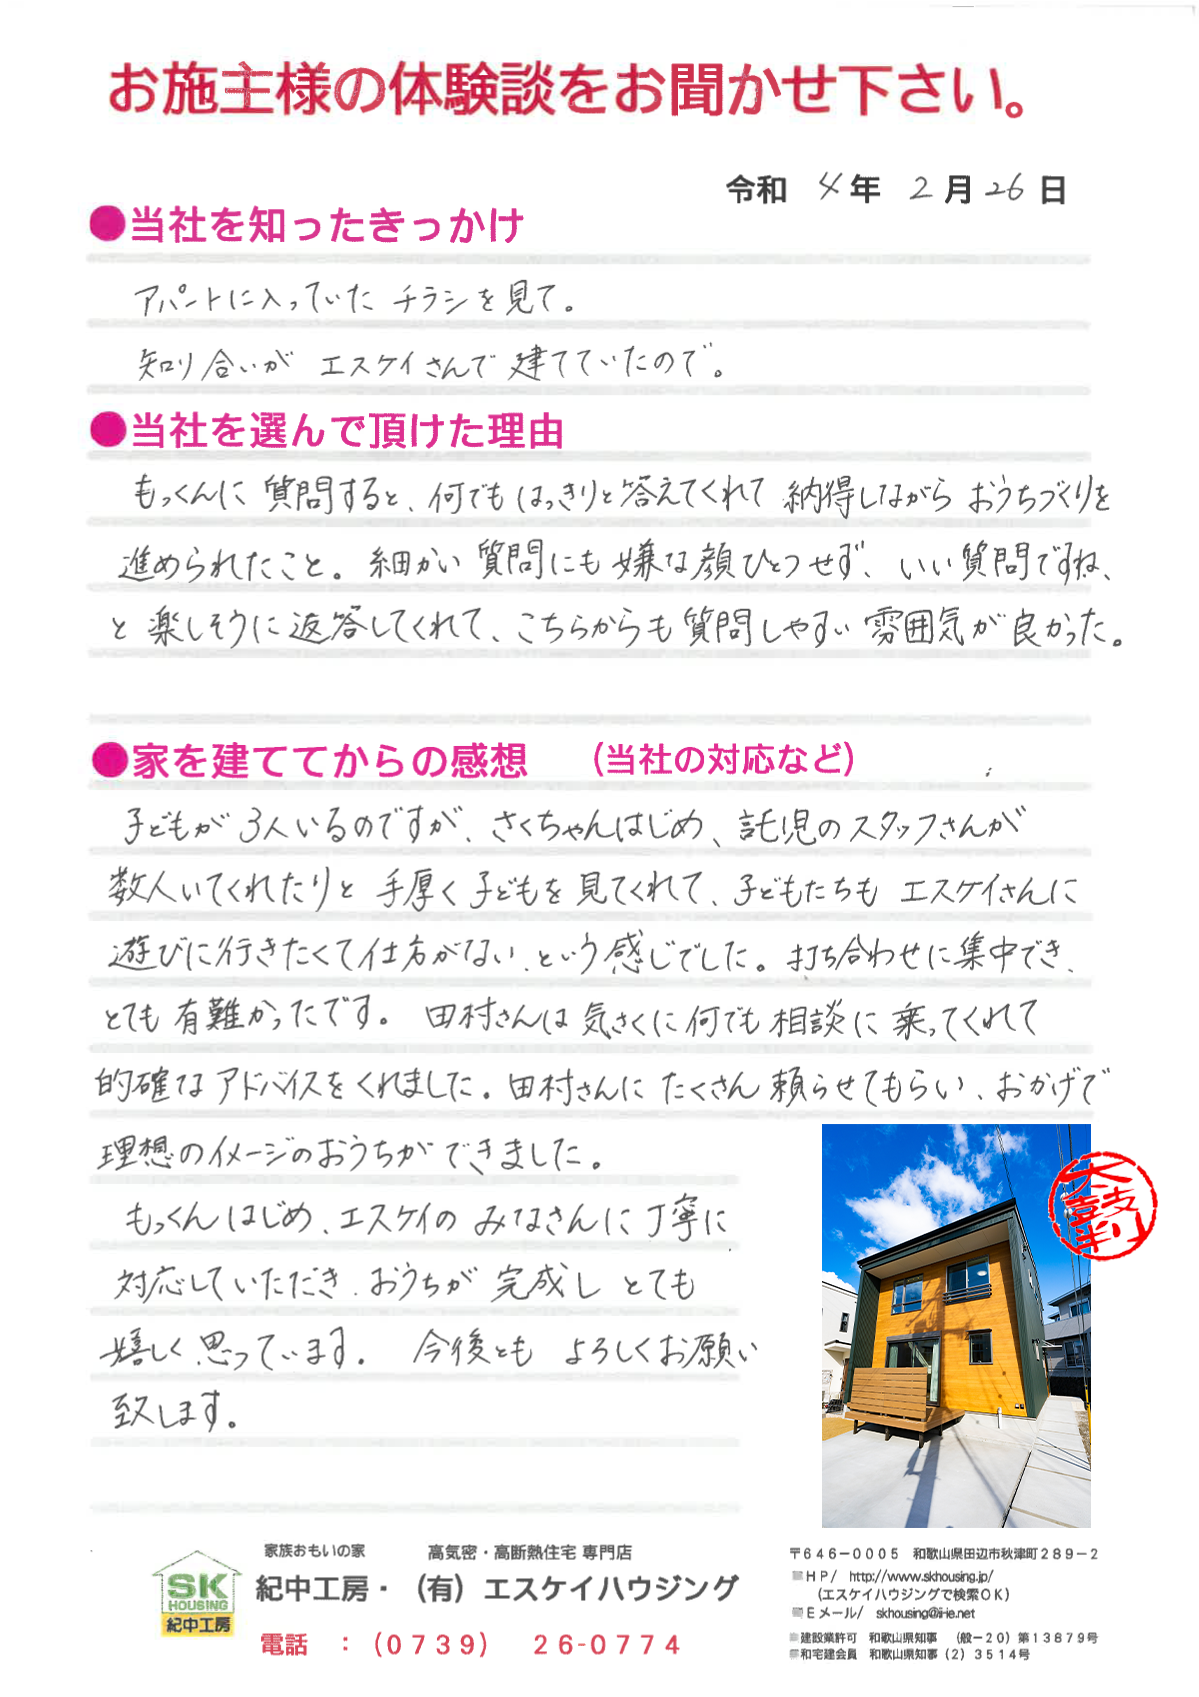 お施主様の体験談をお聞かせ下さい。
令和 4年 2月26日
●当社を知ったきっかけ
アパートに入っていた チラシを見て。
知り合いが エスケイさんで 建てていたので。
●当社を選んで頂けた理由
もっくんに 質問すると、何でも はっきりと答えてくれて 納得しながら おうちづくりを
進められたこと。細かい 質問にも 嫌な顔ひとつせず、いい質問ですね、
と 楽しそうに 返答してくれて、こちらからも 質問しやすい 雰囲気が 良かった。
●家を建ててからの感想 (当社の対応など)
子どもが 3人いるのですが、さくちゃんはじめ、託児のスタッフさんが
数人いてくれたりと 手厚く 子どもを 見てくれて、子どもたちも エスケイさんに
遊びに行きたくて仕方がない、という感じでした。打ち合わせに集中でき、
とても 有難かったです。 田村さんは 気さくに 何でも 相談に 乗ってくれて
的確な アドバイスを くれました。田村さんに たくさん 頼らせてもらい、おかげで
理想のイメージのおうちが できました。
もっくん はじめ、エスケイの みなさんに 丁寧に
対応していただき、おうちが 完成し とても
嬉しく 思っています。 今後とも よろしくお願い
致します。
太鼓判
SK
HOUSING
紀中工房
家族おもいの家 高気密・高断熱住宅 専門店
紀中工房・(有)エスケイハウジング
電話 :(0739) 26-0774
〒646−0005 和歌山県田辺市秋津町289−2
■HP/ http://www.skhousing.jp/
(エスケイハウジングで検索OK)
■Eメール/ skhousing@ii-ie.net
■建設業許可 和歌山県知事 (般ー20)第13879号
■和宅建会員 和歌山県知事(2)3514号